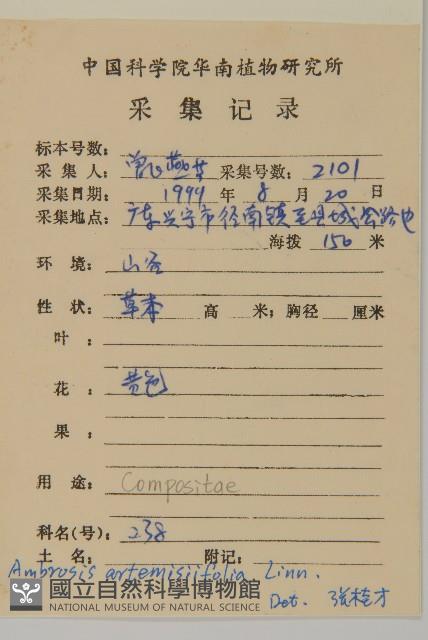 中国科学院华南植物研究所
采集记录
标本号数：
采集人： 曾 采集号数： 2101
采集日期： 1999 年 8 月 20 日
采集地点： 广东兴宁市径南镇至县城公路边
海拨 150 米
环境： 山谷
性状： 草本 高 米；胸径 厘米
叶：
花： 黄色
果：
用途： Compositae
科名(号)： 238
土名： 附记：
Ambrosis artemisiifolia Linn.
國立自然科學博物館
NATIONAL MUSEUM OF NATURAL SCIENCE
Det. 张桂才